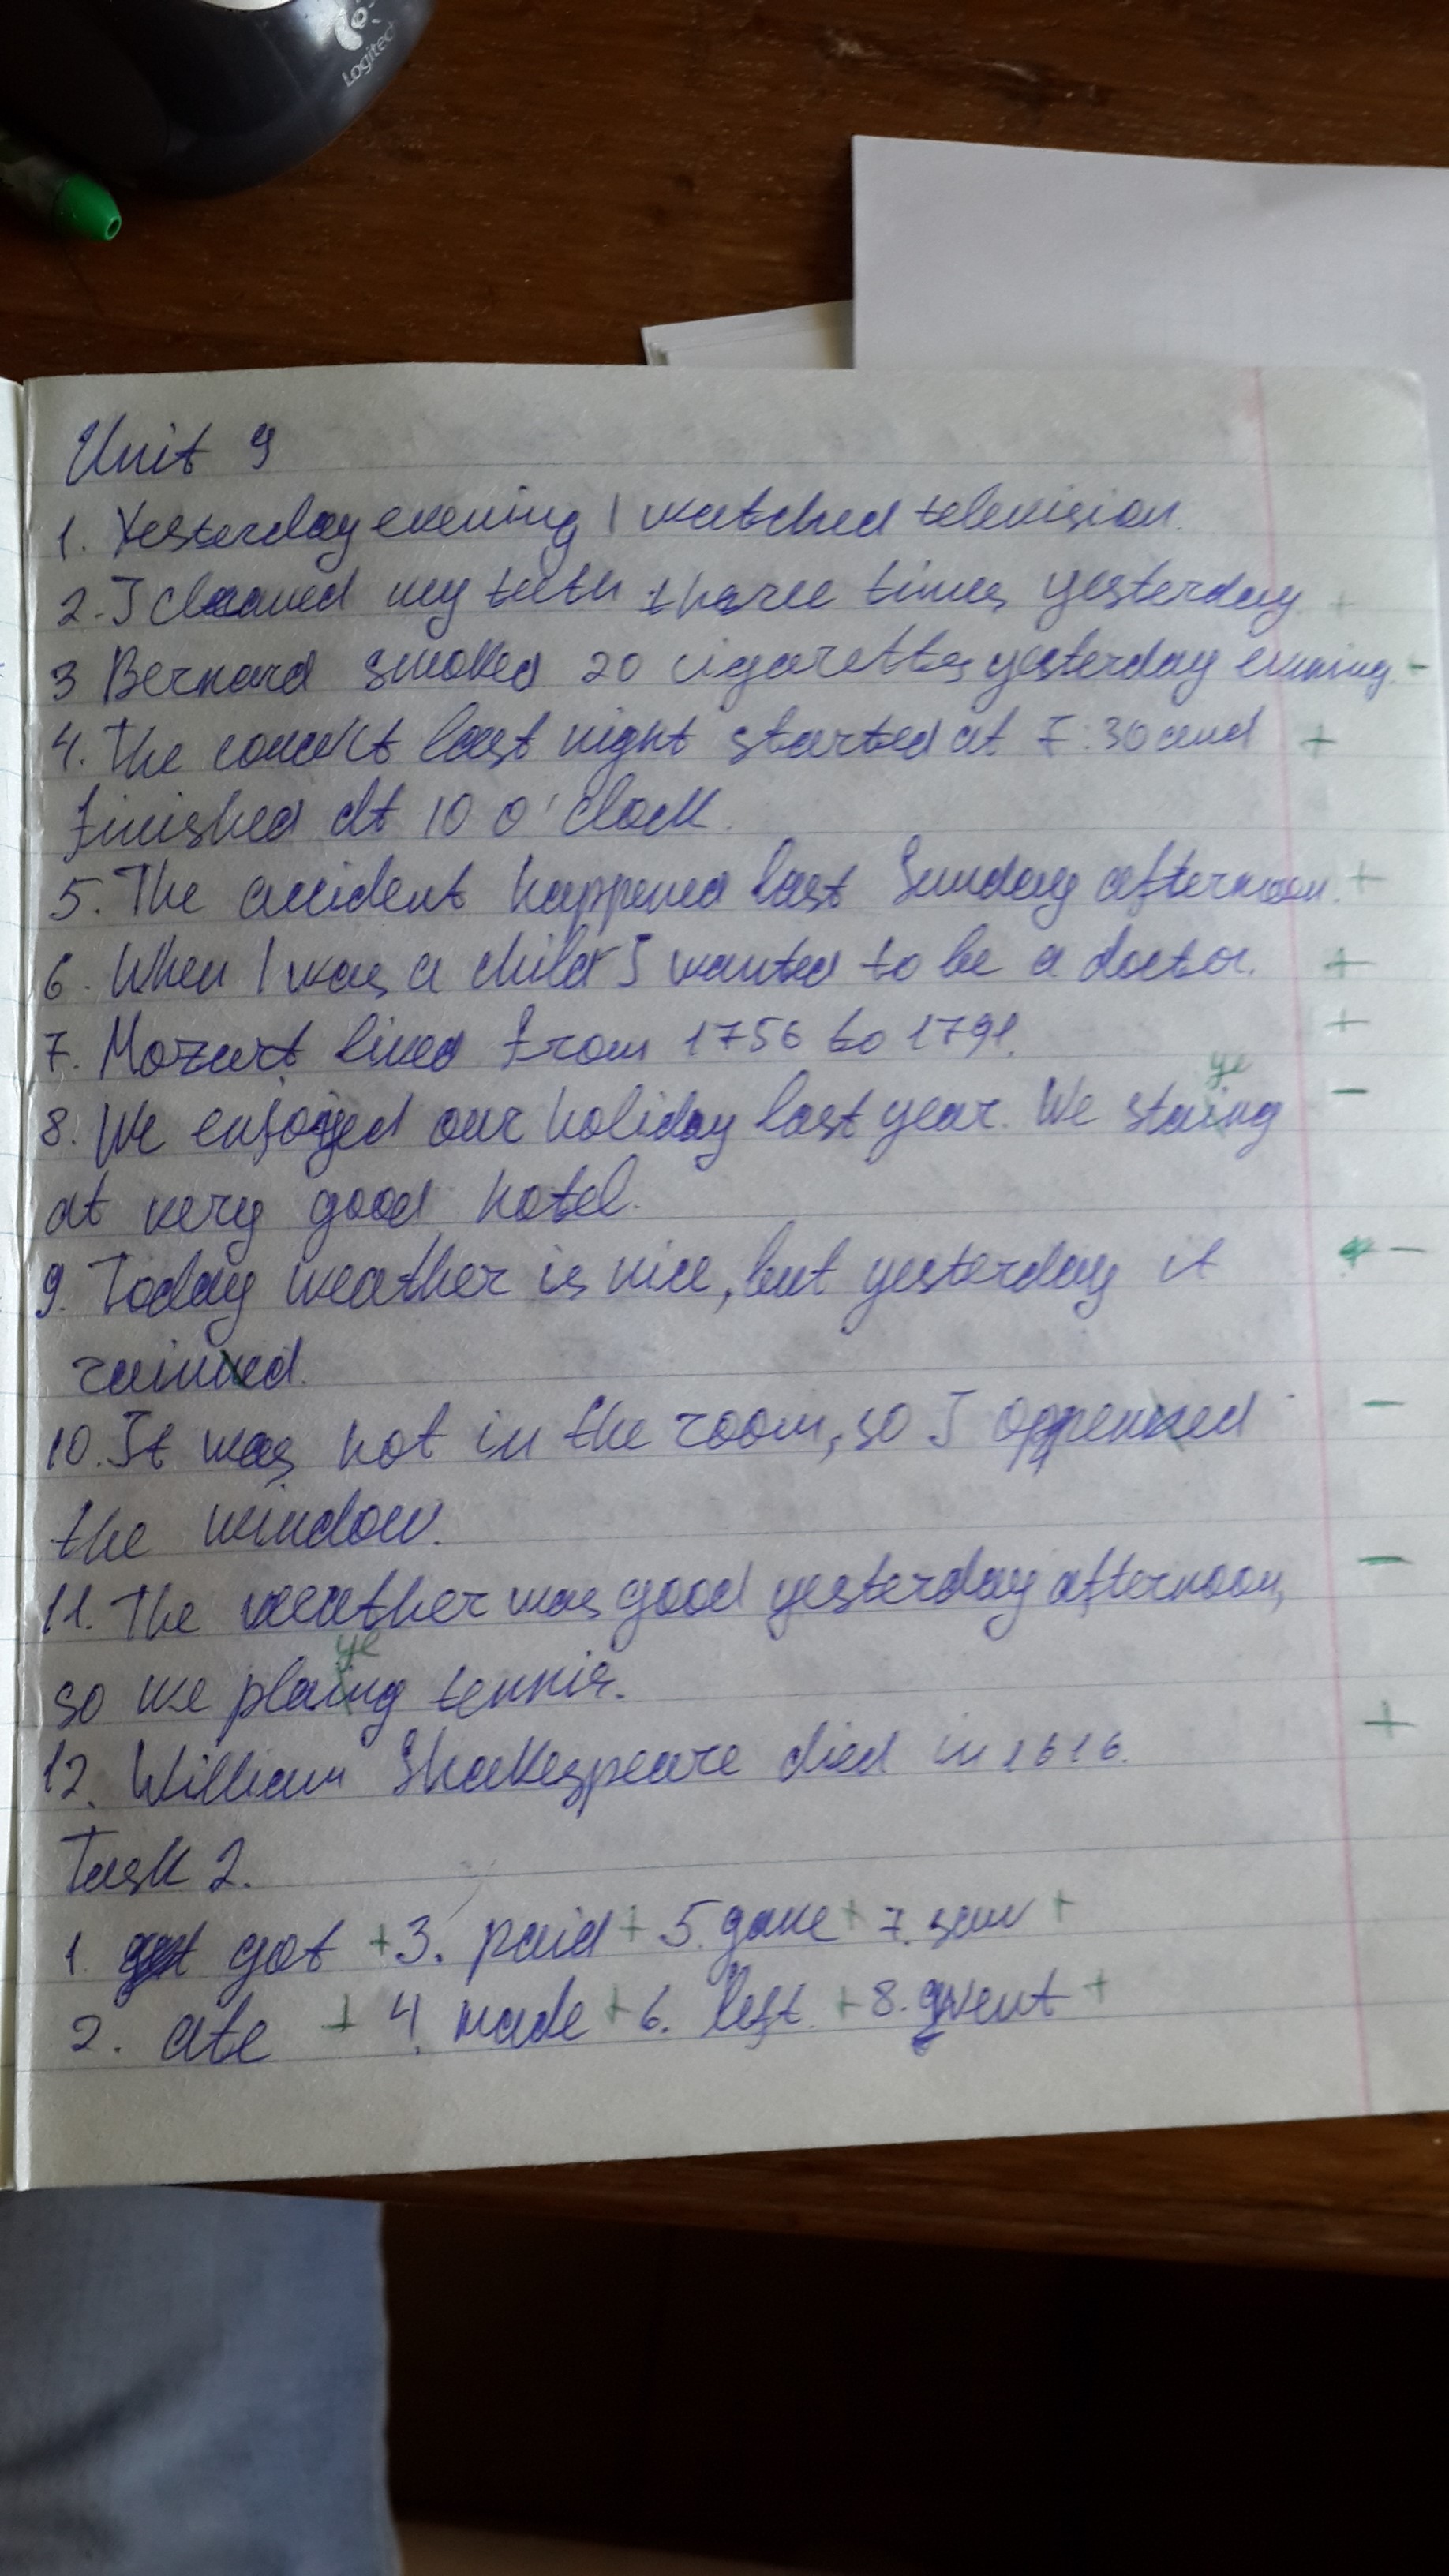 Logitech
Unit 9
1. Yesterday evening I watched television.
2. I cleaned my teeth three times yesterday +
3 Bernard smoked 20 cigarettes yesterday evening. -
4. The concert last night started at 7:30 and +
finished at 10 o'clock.
5. The accident happened last Sunday afternoon. +
6. When I was a child I wanted to be a doctor. +
7. Mozart lived from 1756 to 1791. +
ye
8. We enjoyed our holiday last year. We staing -
at very good hotel.
9. Today weather is nice, but yesterday it -
rainned.
10. It was hot in the room, so I oppenned -
the window.
11. The weather was good yesterday afternoon, -
ye
so we plaing tennis.
12. William Shakespeare died in 1616. +
Task 2.
1. got + 3. paid + 5. gave + 7. saw +
2. ate + 4. made + 6. left. + 8. went +